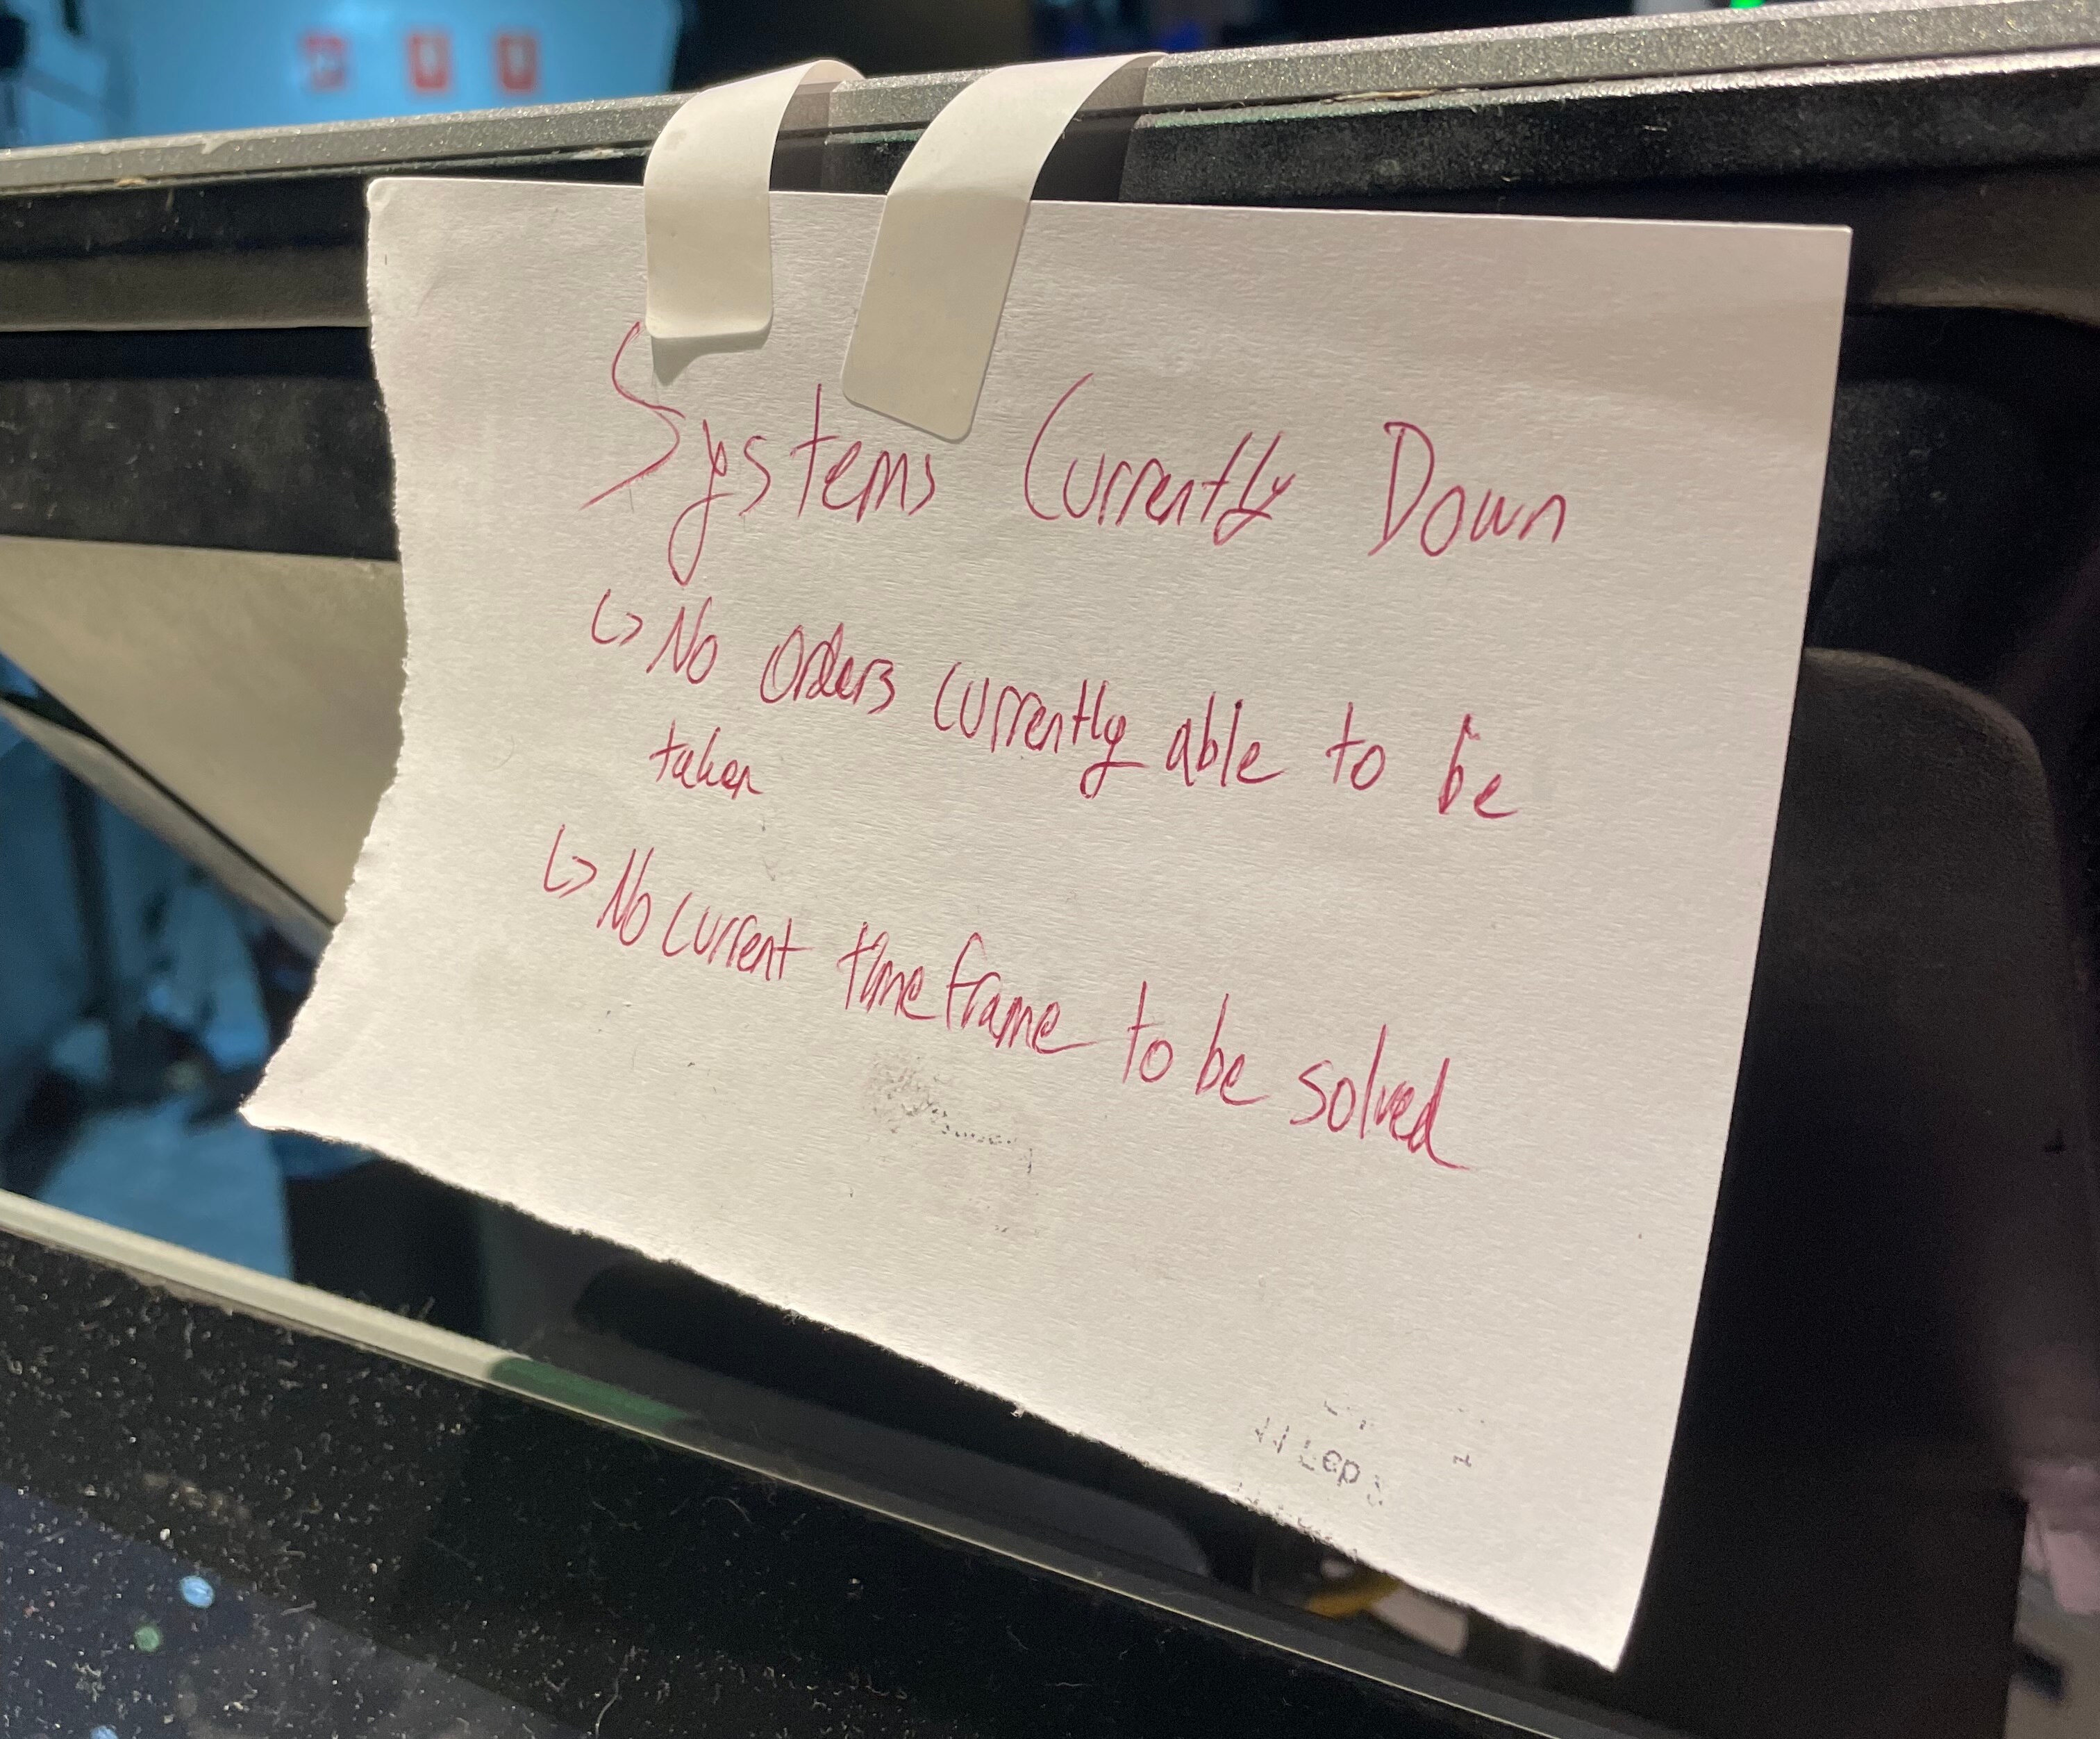 Systems Currently Down
↳ No Orders currently able to be
taken
↳ No current timeframe to be solved